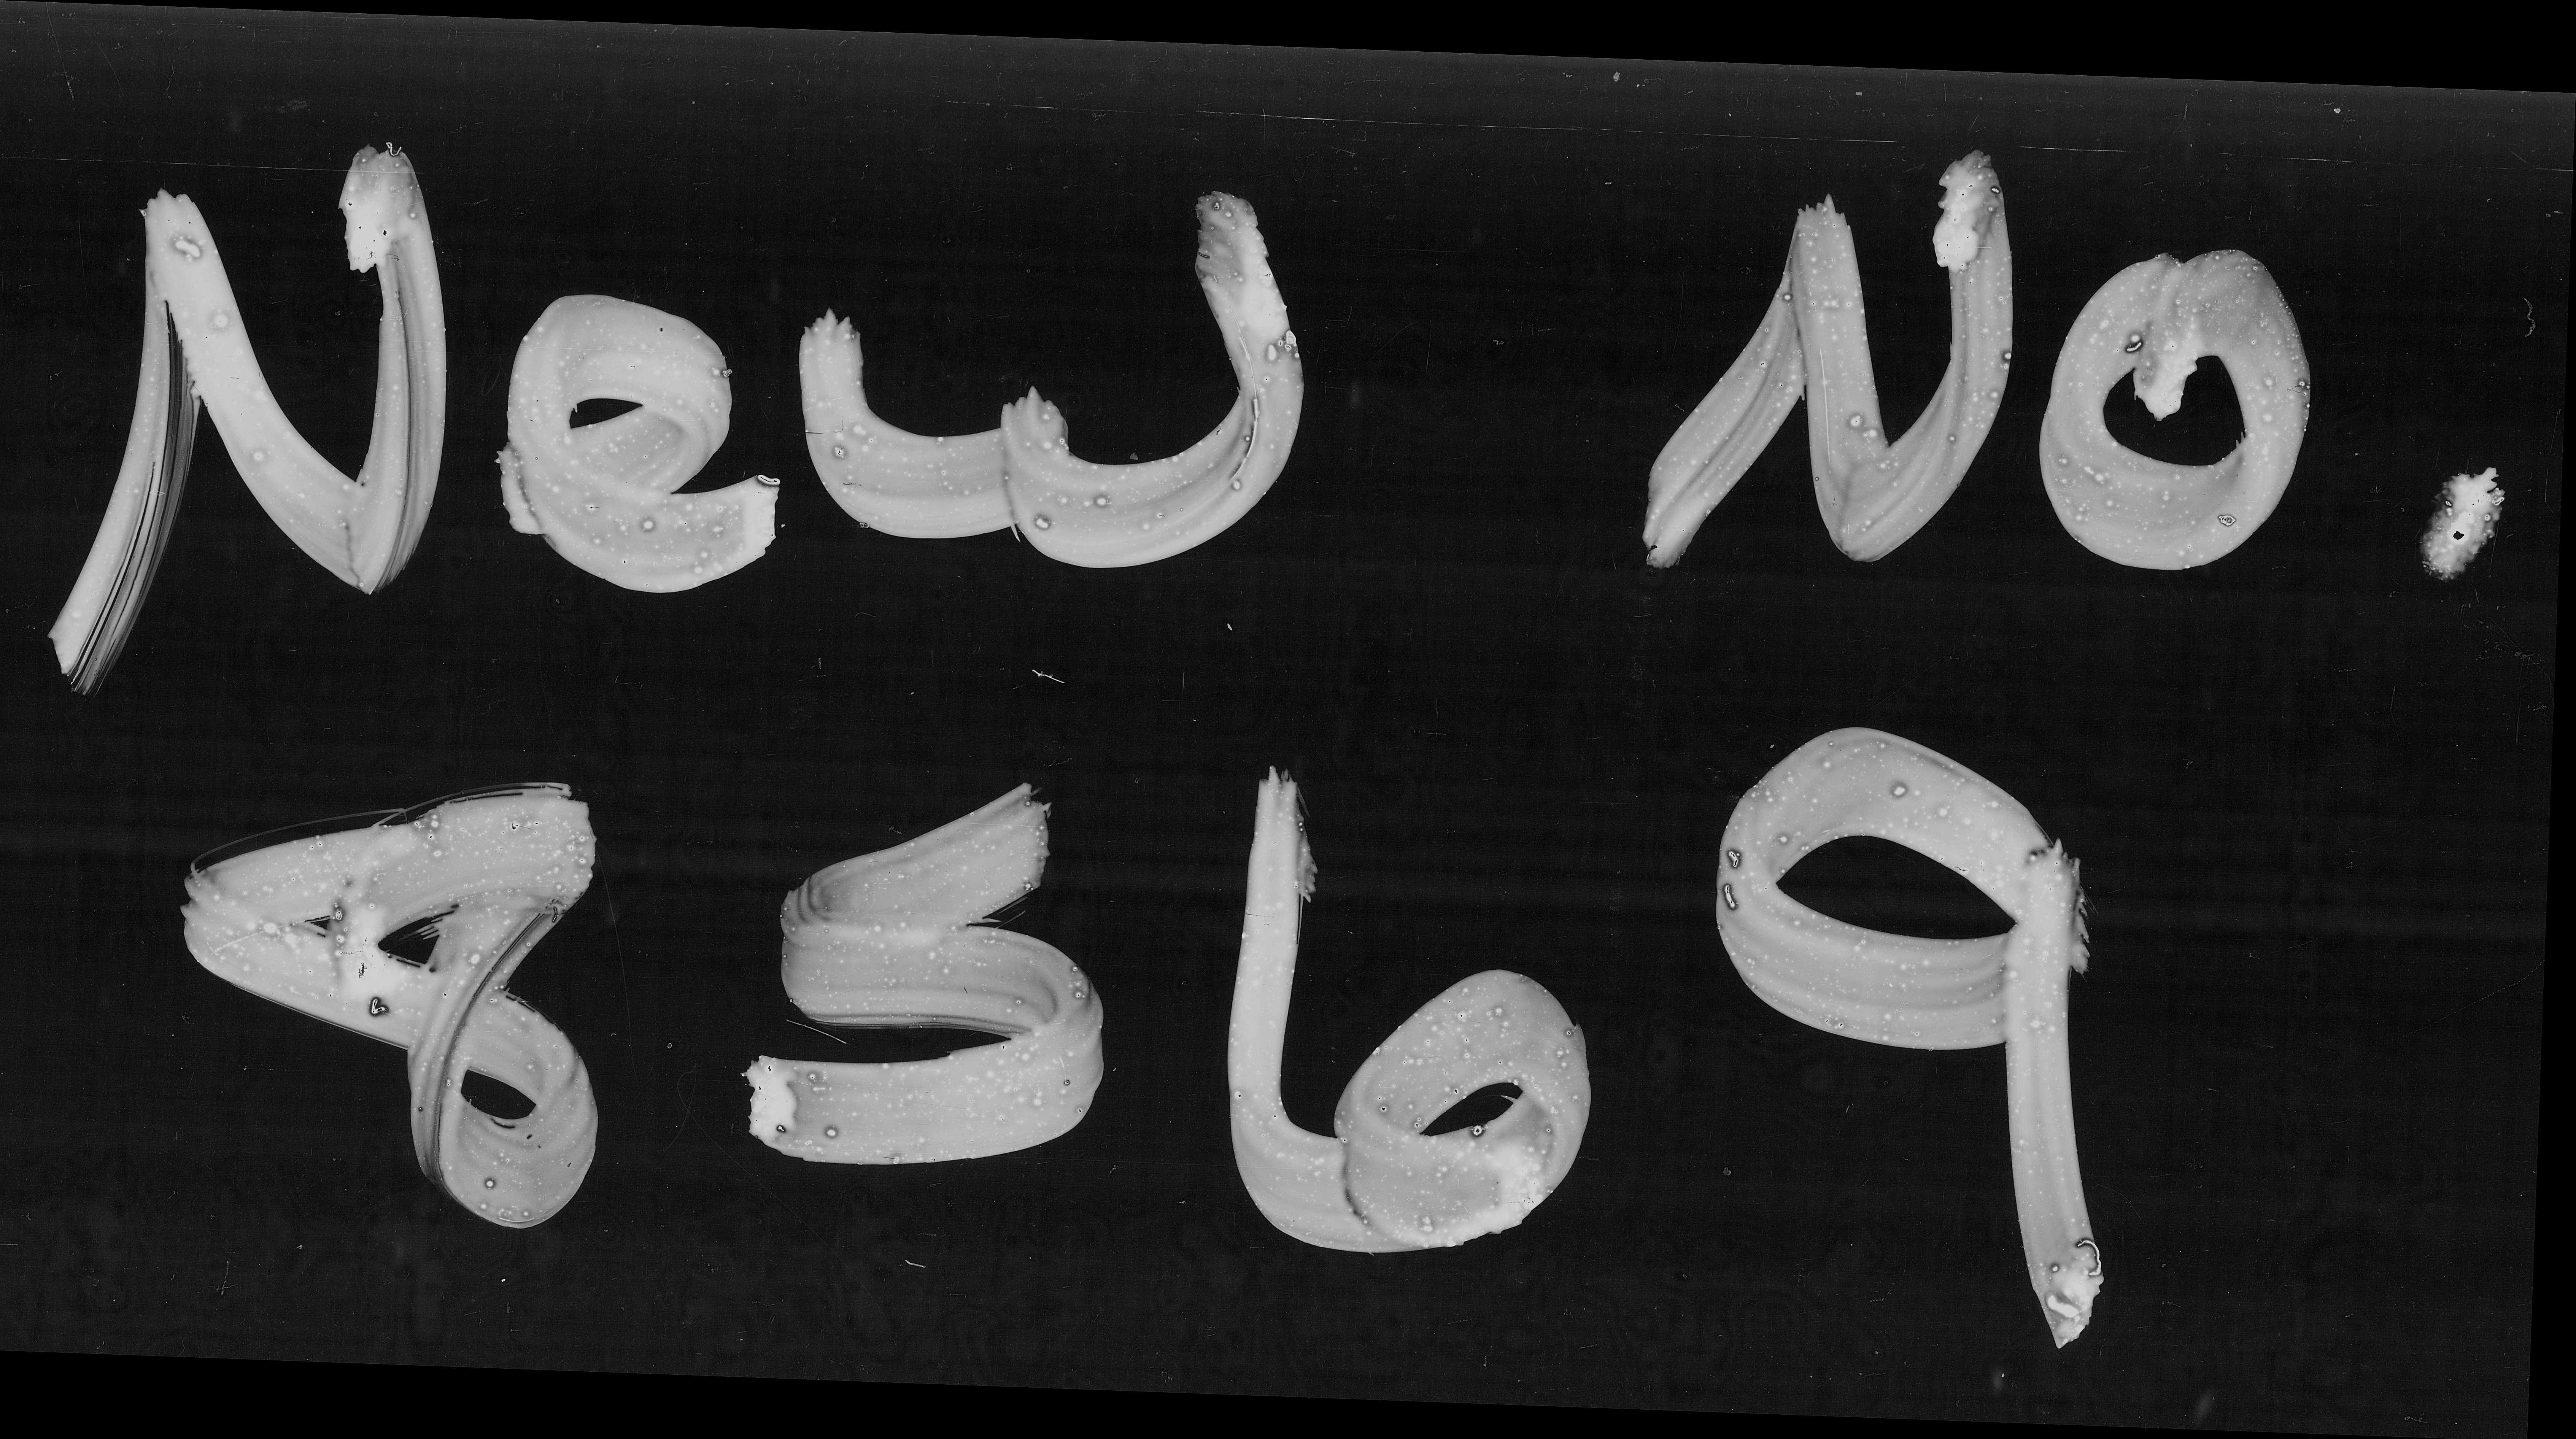 New No.
8569